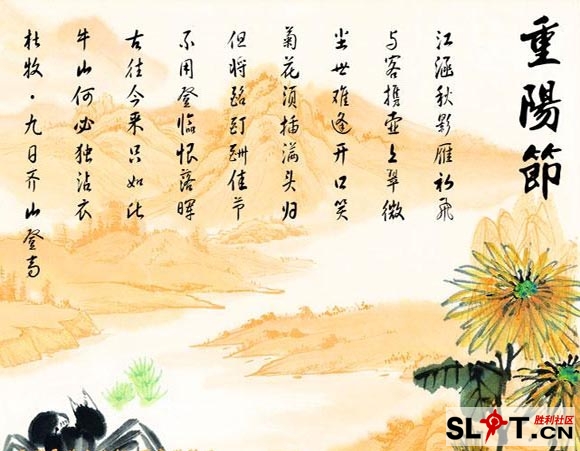 重陽節
江涵秋影雁初飛
与客携壶上翠微
尘世难逢开口笑
菊花须插满头归
但将酩酊酬佳节
不用登临恨落晖
古往今来只如此
牛山何必独沾衣
杜牧·九日齐山登高
胜利社区
SL★T.CN